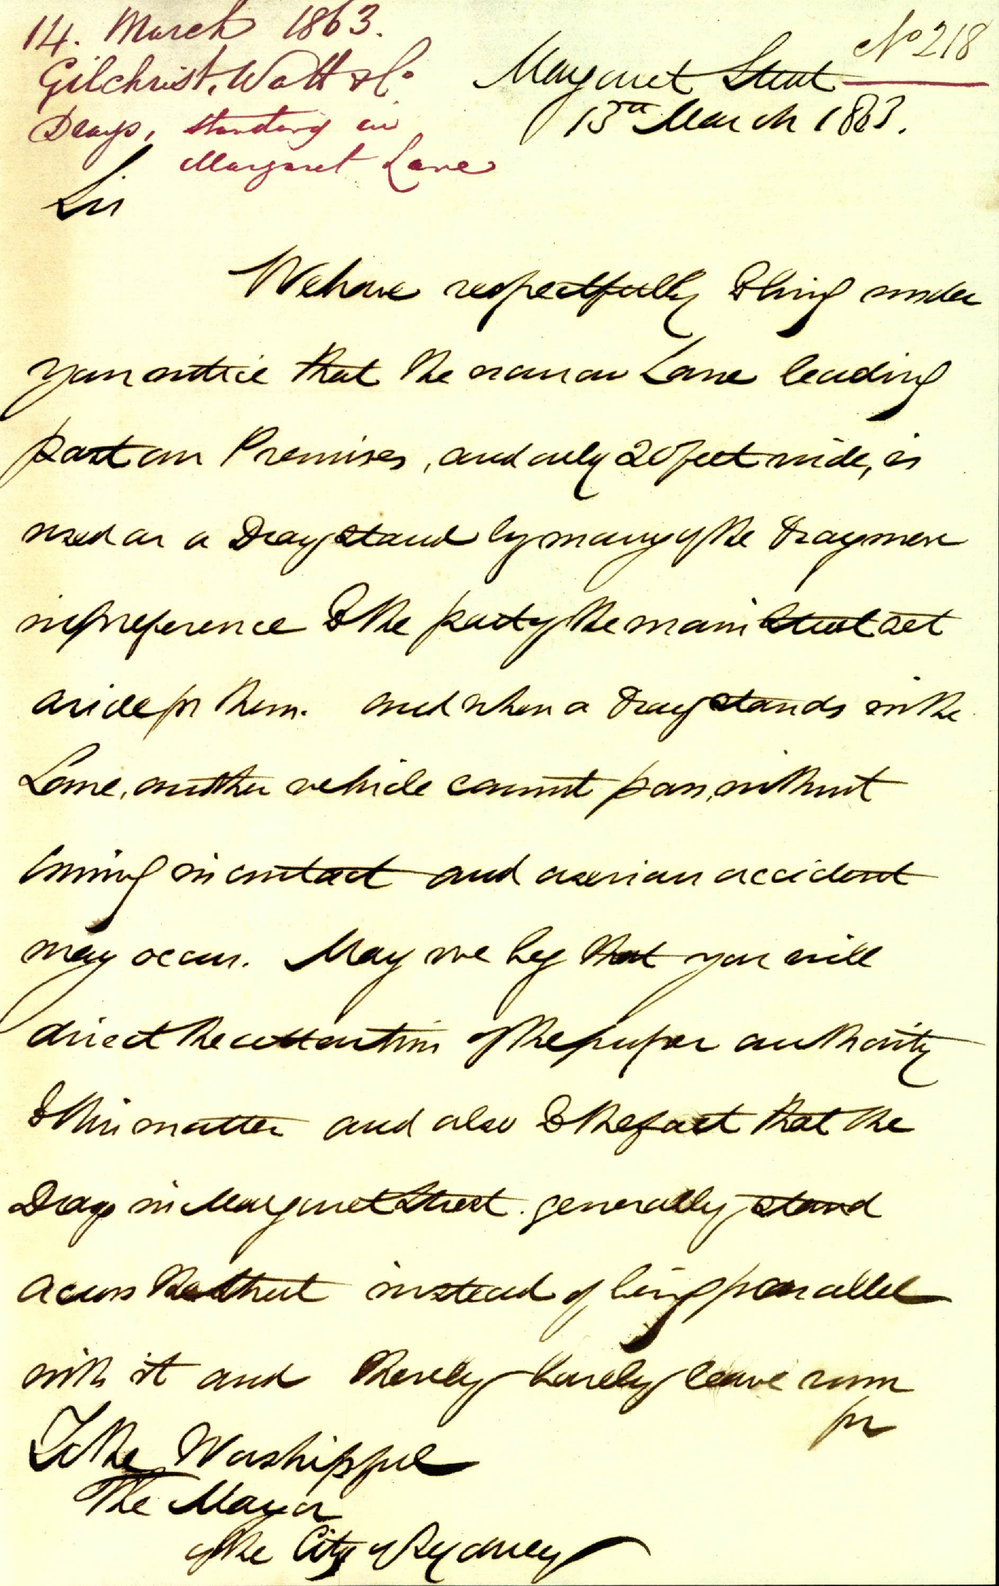 14. March 1863.
Gilchrist, Watt & Co
Drays, standing in
Margaret Lane
No 218
Margaret Street
13th March 1863.
Sir
We have respectfully to bring under
your notice that the narrow Lane leading
past our Premises, and only 20 feet wide, is
used as a Dray stand by many of the Draymen
in preference to the part of the main Street set
aside for them. and when a Dray stands in the
Lane, another vehicle cannot pass, without
coming in contact and a serious accident
may occur. May we beg that you will
direct the attention of the proper authority
to this matter and also to the fact that the
Drays in Margaret Street generally stand
across the Street instead of being parallel
with it and thereby barely leave room
for
To the Worshipful
The Mayor
of the City of Sydney